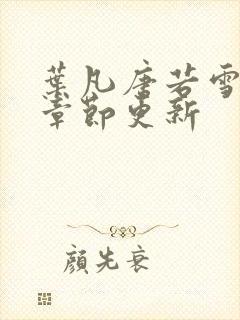 葉凡唐若雪
章節更新
顔先衰